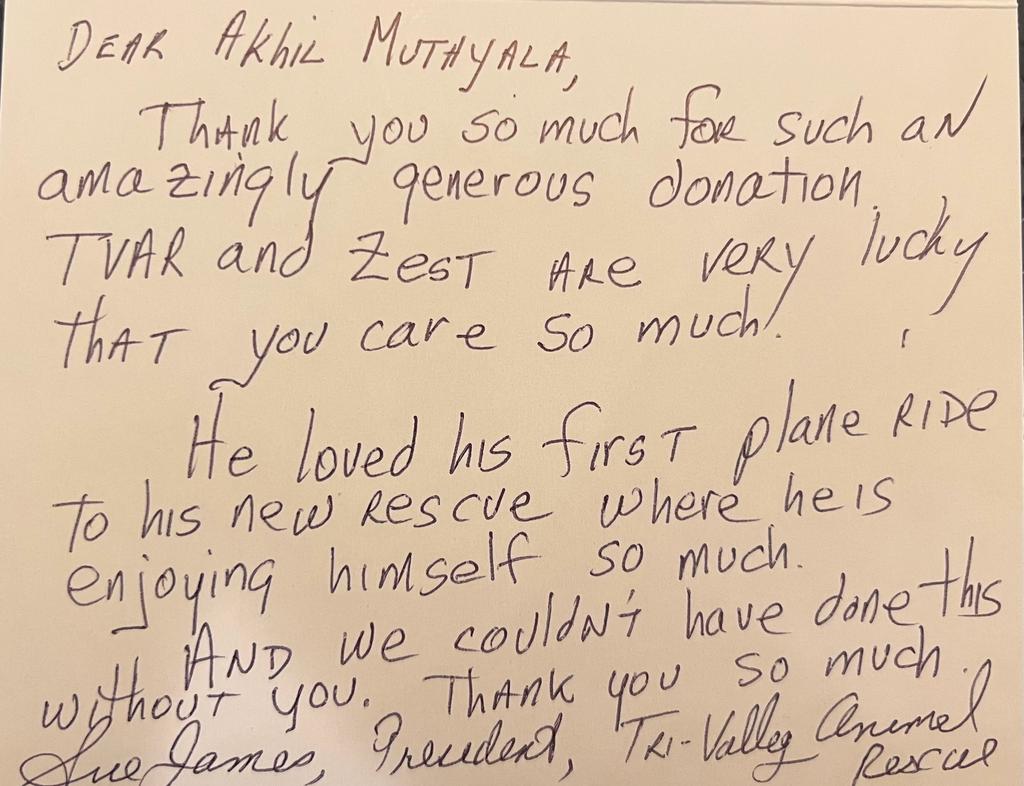 Dear Akhil Muthyala,
Thank you so much for such an
amazingly generous donation.
TVAR and Zest are very lucky
that you care so much!
He loved his first plane ride
to his new rescue where he is
enjoying himself so much.
And we couldn't have done this
without you. Thank you so much.
Sue James, President, Tri-Valley Animal
Rescue